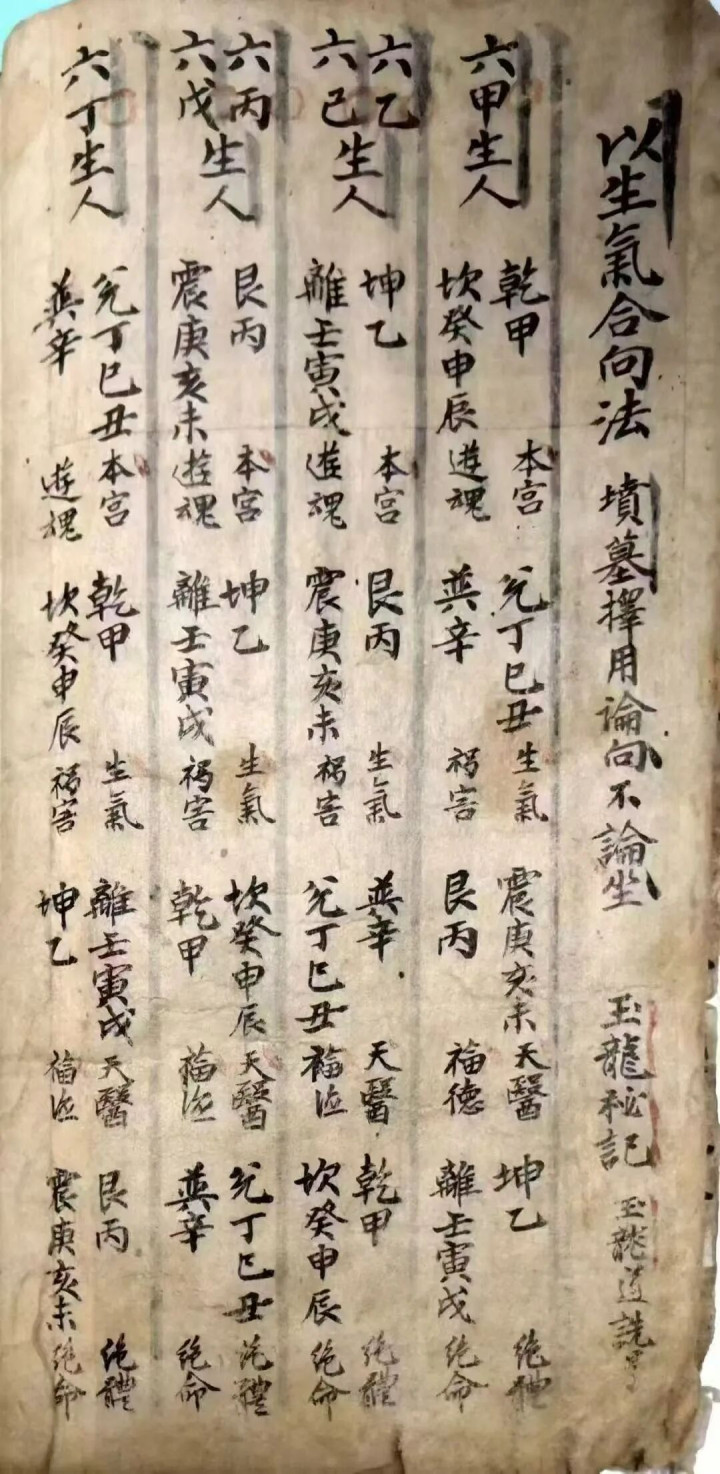 以生氣合向法 墳墓擇用論向不論坐 玉龍秘記 玉龍道詵
六甲生人
乾甲 本宮 兌丁巳丑 生氣 震庚亥未 天醫 坤乙 絶體
坎癸申辰 遊魂 巽辛 禍害 艮丙 福德 離壬寅戌 絶命
六乙
六己生人
坤乙 本宮 艮丙 生氣 巽辛 天醫 乾甲 絶體
離壬寅戌 遊魂 震庚亥未 禍害 兌丁巳丑 福德 坎癸申辰 絶命
六丙
六戊生人
艮丙 本宮 坤乙 生氣 坎癸申辰 天醫 兌丁巳丑 絶體
震庚亥未 遊魂 離壬寅戌 禍害 乾甲 福德 巽辛 絶命
六丁生人
兌丁巳丑 本宮 乾甲 生氣 離壬寅戌 天醫 艮丙 絶體
巽辛 遊魂 坎癸申辰 禍害 坤乙 福德 震庚亥未 絶命